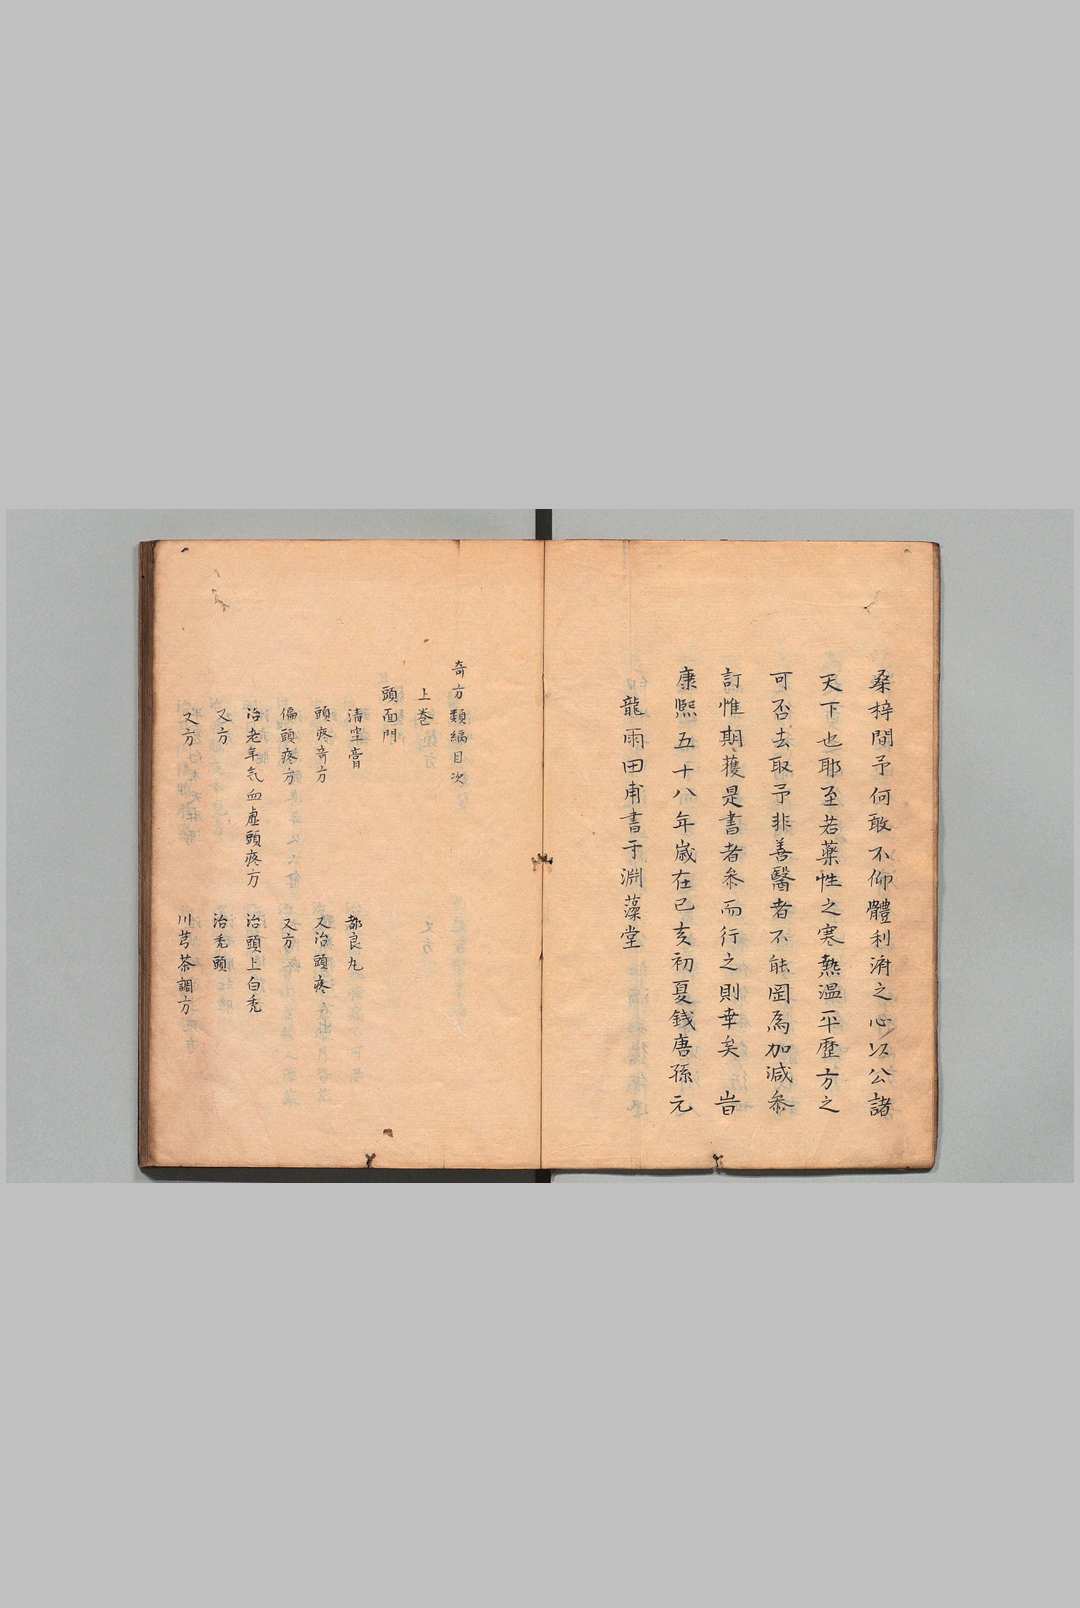 桑梓間予何敢不仰體利濟之心以公諸
天下也耶至若藥性之寒熱温平歷方之
可否去取予非善醫者不能罔為加減叅
訂惟期獲是書者叅而行之則幸矣 旹
康熈五十八年歲在己亥初夏錢唐孫元
龍雨田甫書于淵藻堂
奇方類編目次
上卷
頭面門
清空膏 都良丸
頭疼奇方 又治頭疼
偏頭疼方 又方
治老年氣血虛頭疼方 治頭上白禿
又方 治禿頭
又方 川芎茶調方